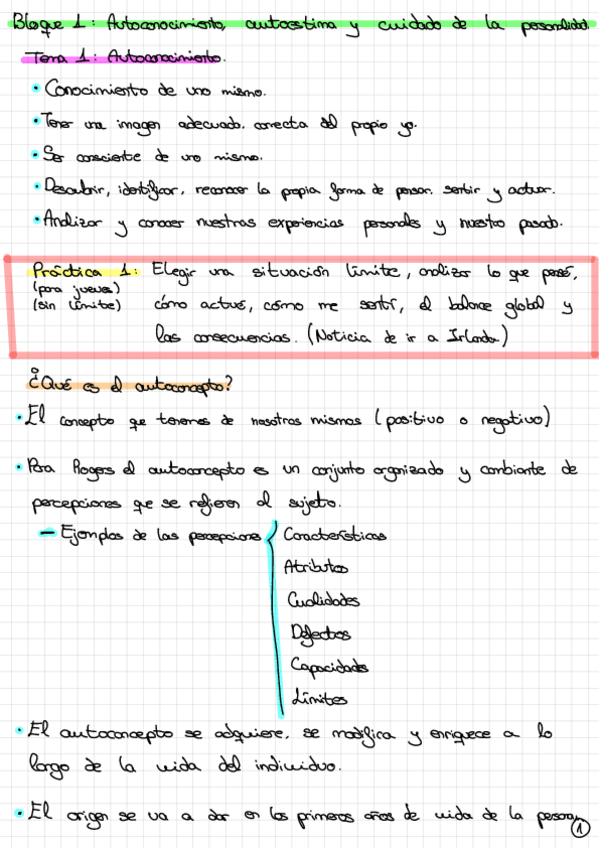 Bloque 1: Autoconocimiento, autoestima y cuidado de la personalidad.
Tema 1: Autoconocimiento.
• Conocimiento de uno mismo.
• Tener una imagen adecuada, correcta del propio yo.
• Ser consciente de uno mismo.
• Descubrir, identificar, reconocer la propia forma de pensar, sentir y actuar.
• Analizar y conocer nuestras experiencias personales y nuestro pasado.
Práctica 1: Elegir una situación límite, analizar lo que pasó,
(para jueves)
(sin límite) cómo actué, cómo me sentí, el balance global y
las consecuencias. (Noticia de ir a Irlanda)
¿Qué es el autoconcepto?
• El concepto que tenemos de nosotros mismos (positivo o negativo)
• Para Rogers el autoconcepto es un conjunto organizado y cambiante de
percepciones que se refieren al sujeto.
– Ejemplos de las percepciones { Características
Atributos
Cualidades
Defectos
Capacidades
Límites
• El autoconcepto se adquiere, se modifica y enriquece a lo
largo de la vida del individuo.
• El origen se va a dar en los primeros años de vida de la persona
1